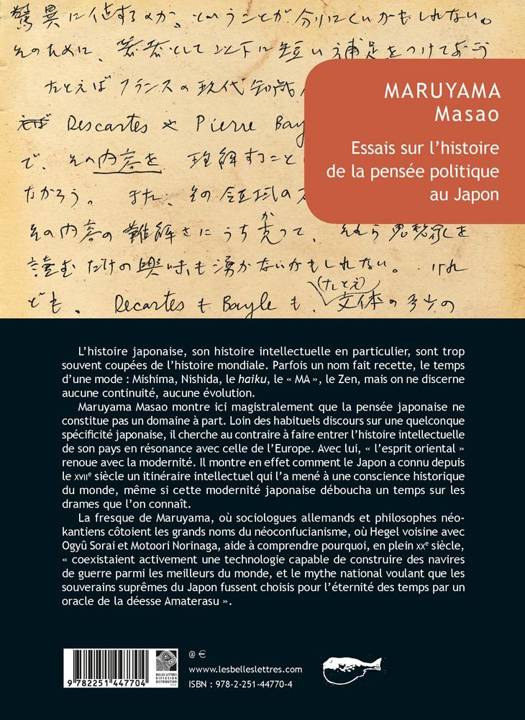 驚異に値するか、ということが分りにくいかもしれない。
そのために、蕃蕃として以下に短い補足をつけておう
たとえばフランスの現代知識
Descartes や Pierre Bay
で、その内容を 理解すること
たがろう。 また、その領域の
その内容の難解さにうち克って、それら思想家を
読むだけの興味も湧かないかもしれない。 けれ
ども、Decartes も Bayle も、(たとえ)文体の多少の
MARUYAMA
Masao
Essais sur l’histoire
de la pensée politique
au Japon
L’histoire japonaise, son histoire intellectuelle en particulier, sont trop
souvent coupées de l’histoire mondiale. Parfois un nom fait recette, le temps
d’une mode : Mishima, Nishida, le haiku, le « MA », le Zen, mais on ne discerne
aucune continuité, aucune évolution.
Maruyama Masao montre ici magistralement que la pensée japonaise ne
constitue pas un domaine à part. Loin des habituels discours sur une quelconque
spécificité japonaise, il cherche au contraire à faire entrer l’histoire intellectuelle
de son pays en résonance avec celle de l’Europe. Avec lui, « l’esprit oriental »
renoue avec la modernité. Il montre en effet comment le Japon a connu depuis
le XVIIe siècle un itinéraire intellectuel qui l’a mené à une conscience historique
du monde, même si cette modernité japonaise déboucha un temps sur les
drames que l’on connaît.
La fresque de Maruyama, où sociologues allemands et philosophes néo-
kantiens côtoient les grands noms du néoconfucianisme, où Hegel voisine avec
Ogyû Sorai et Motoori Norinaga, aide à comprendre pourquoi, en plein XXe siècle,
« coexistaient activement une technologie capable de construire des navires
de guerre parmi les meilleurs du monde, et le mythe national voulant que les
souverains suprêmes du Japon fussent choisis pour l’éternité des temps par un
oracle de la déesse Amaterasu ».
9 782251 447704
BELLES LETTRES
DIFFUSION
DISTRIBUTION
@ €
www.lesbelleslettres.com
ISBN : 978-2-251-44770-4